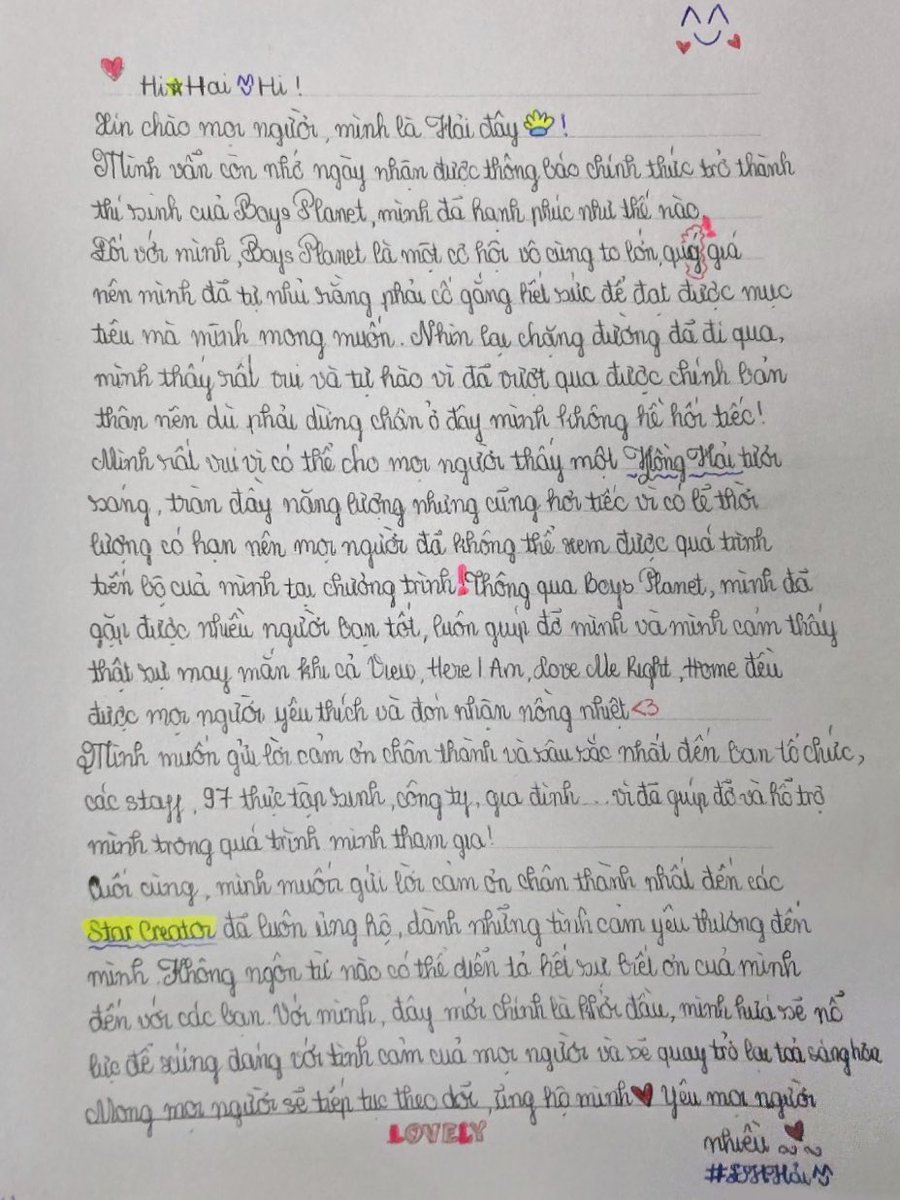 Hi Hai Hi !
Xin chào mọi người, mình là Hải đây !
Mình vẫn còn nhớ ngày nhận được thông báo chính thức trở thành
thí sinh của Boys Planet, mình đã hạnh phúc như thế nào!
Đối với mình, Boys Planet là một cơ hội vô cùng to lớn, quý giá
nên mình đã tự nhủ rằng phải cố gắng hết sức để đạt được mục
tiêu mà mình mong muốn. Nhìn lại chặng đường đã đi qua,
mình thấy rất vui và tự hào vì đã vượt qua được chính bản
thân nên dù phải dừng chân ở đây mình không hề hối tiếc!
Mình rất vui vì có thể cho mọi người thấy một Hồng Hải tươi
sáng, tràn đầy năng lượng nhưng cũng hơi tiếc vì có lẽ thời
lượng có hạn nên mọi người đã không thể xem được quá trình
tiến bộ của mình tại chương trình! Thông qua Boys Planet, mình đã
gặp được nhiều người bạn tốt, luôn giúp đỡ mình và mình cảm thấy
thật sự may mắn khi cả View, Here I Am, Love Me Right, Home đều
được mọi người yêu thích và đón nhận nồng nhiệt <3
Mình muốn gửi lời cảm ơn chân thành và sâu sắc nhất đến ban tổ chức,
các staff, 97 thực tập sinh, công ty, gia đình ... vì đã giúp đỡ và hỗ trợ
mình trong quá trình mình tham gia!
Cuối cùng, mình muốn gửi lời cảm ơn chân thành nhất đến các
Star Creator đã luôn ủng hộ, dành những tình cảm yêu thương đến
mình. Không ngôn từ nào có thể diễn tả hết sự biết ơn của mình
đến với các bạn. Với mình, đây mới chính là khởi đầu, mình hứa sẽ nỗ
lực để xứng đáng với tình cảm của mọi người và sẽ quay trở lại toả sáng hơn
Mong mọi người sẽ tiếp tục theo dõi, ủng hộ mình ♥ Yêu mọi người
nhiều
LOVELY